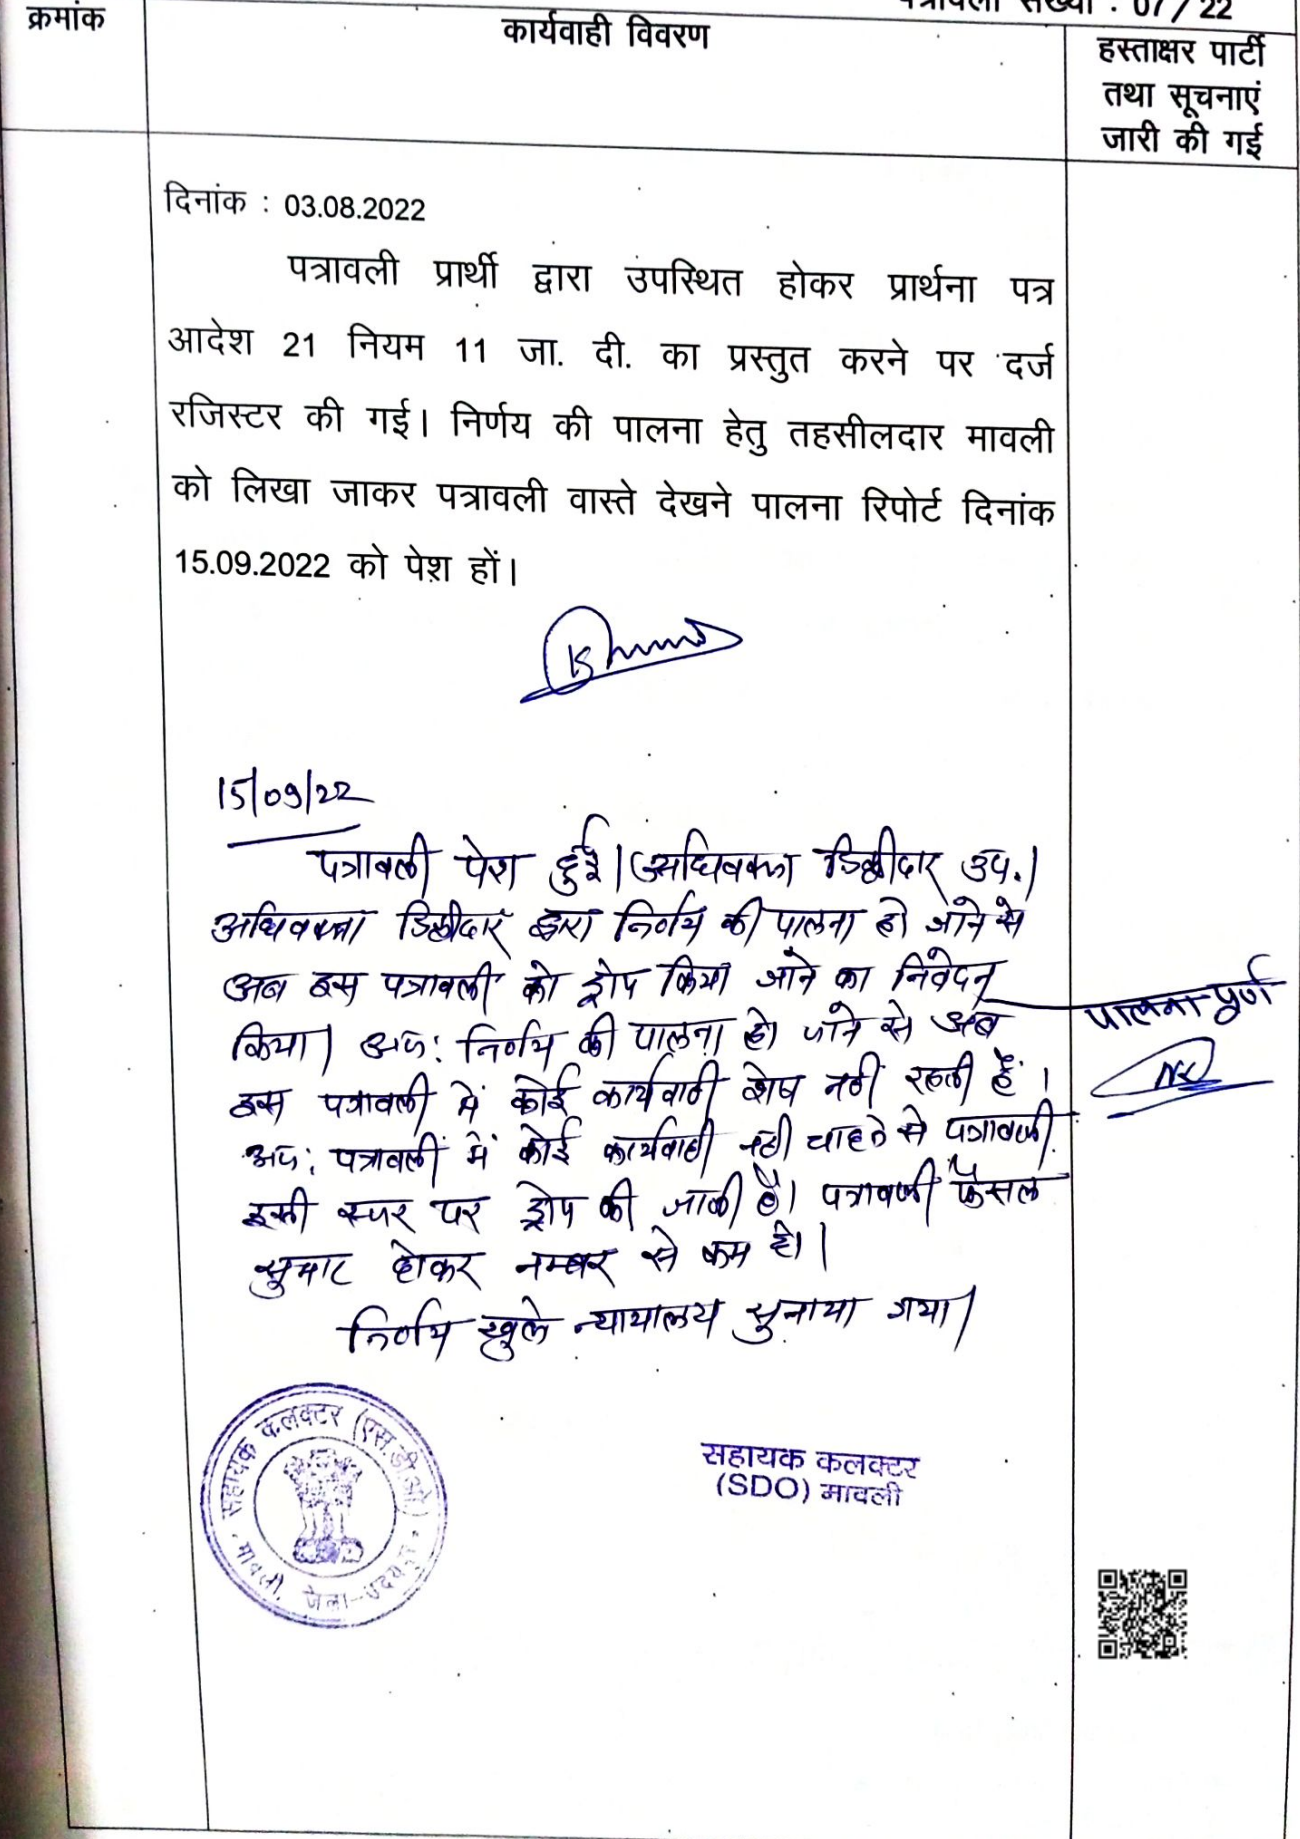 पत्रावली संख्या : 07/22
क्रमांक
कार्यवाही विवरण
हस्ताक्षर पार्टी
तथा सूचनाएं
जारी की गई
दिनांक : 03.08.2022
पत्रावली प्रार्थी द्वारा उपस्थित होकर प्रार्थना पत्र
आदेश 21 नियम 11 जा. दी. का प्रस्तुत करने पर दर्ज
रजिस्टर की गई। निर्णय की पालना हेतु तहसीलदार मावली
को लिखा जाकर पत्रावली वास्ते देखने पालना रिपोर्ट दिनांक
15.09.2022 को पेश हों।
15/09/22
पत्रावली पेश हुई। अधिवक्ता डिक्रीदार उप.।
अधिवक्ता डिक्रीदार द्वारा निर्णय की पालना हो जाने से
अब इस पत्रावली को ड्रोप किया जाने का निवेदन
किया। अतः निर्णय की पालना हो जाने से अब
इस पत्रावली में कोई कार्यवाही शेष नही रहती है।
अतः पत्रावली में कोई कार्यवाही नही चाहने से पत्रावली
इसी स्तर पर ड्रोप की जाती है। पत्रावली फैसल
शुमार होकर नम्बर से कम हो।
निर्णय खुले न्यायालय सुनाया गया।
पालना पूर्ण
सहायक कलक्टर (एस.डी.ओ.)
मावली, जिला-उदयपुर
सहायक कलक्टर
(SDO) मावली